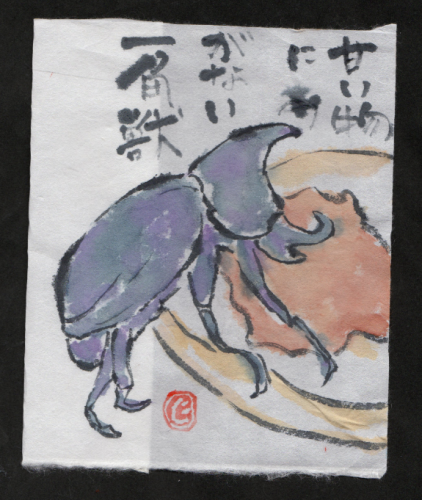 甘い物
に
がない
一角獣